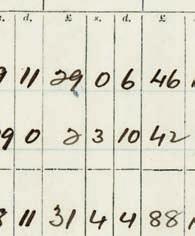 d. £ s. d. £
9 11 29 0 6 46
9 0 2 3 10 42
8 11 31 4 4 88